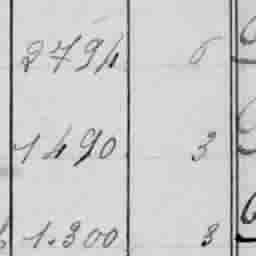 2794 6
1490 3
1.300 3